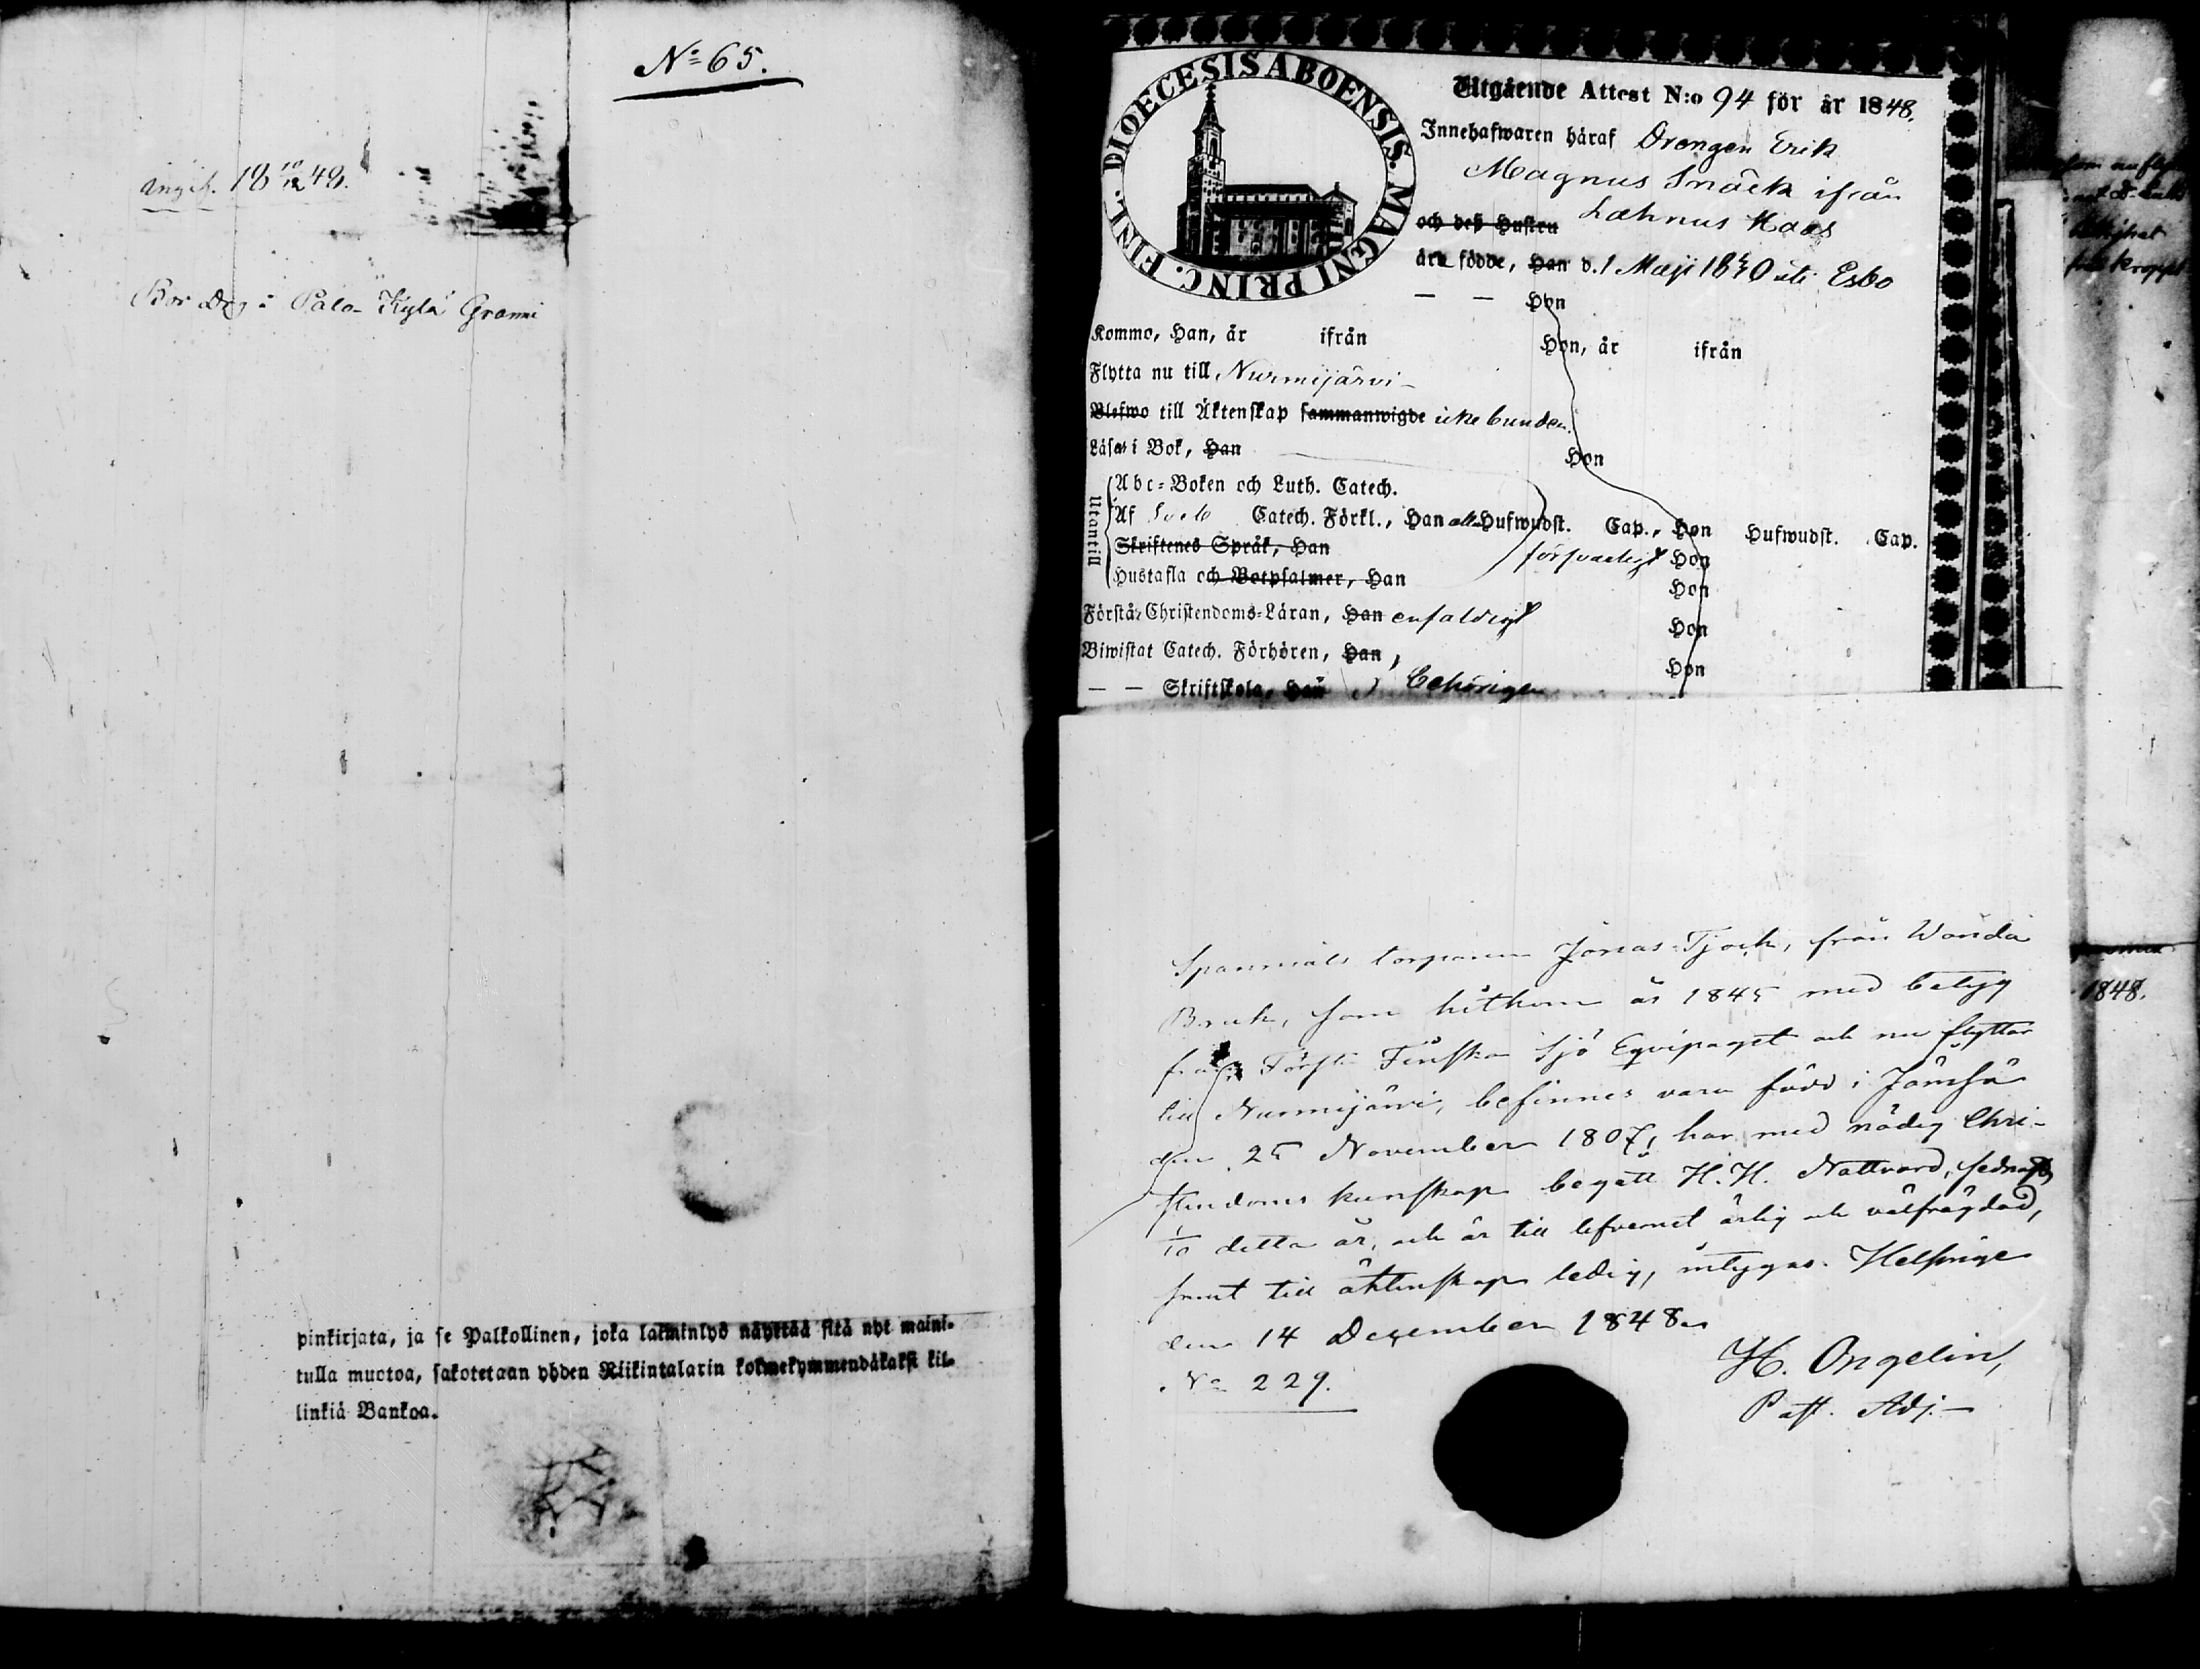 No 65.
ingif. 18 10/12 48.
Bor Drg i Palo-Kylä Granni
pinkirjata, ja se Palkollinen, joka laiminlyö näyttää sitä nyt maini-
tulla muotoa, sakotetaan yhden Riikintalarin kolmekymmendäkaksi kil-
linkiä Bankoa.
FINL. DIOECESIS ABOENSIS. MAGNI PRINC.
Utgående Attest N:o 94 för år 1848.
Innehafwaren häraf Drengen Erik
Magnus Snäck ifrån
och deß Hustru Lahnus Kaas
äro födde, Han d. 1 Maji 18 0 uti Esbo
— — Hon
Kommo, Han, år ifrån Hon, år ifrån
Flytta nu till Nurmijärvi –
Blefwo till Äktenskap sammanwigde icke bunden.
Läser i Bok, Han Hon
Utantill
Abc-Boken och Luth. Catech.
Af Sveb Catech. Förkl., Han alla Hufwudst. Cap., Hon Hufwudst. Cap.
Skriftenes Språk, Han försvarligt Hon
Hustafla och Botpsalmer, Han Hon
Förstår Christendoms-Läran, Han enfaldigt Hon
Biwistat Catech. Förhören, Han Hon
— — Skriftskola, Han behörigen
Spanmåls torparen Jonas Tjock, från Wanda
Bruk, som hitkom år 1845 med betyg
från Första Finska Sjö Eqvipaget och nu flyttar
till Nurmijärvi, befinnes vara född i Jämsä
den 25 November 1807, har med nödig Chri-
stendoms kunskap begått H. H. Nattvard, sednast
1/10 detta år, och är till lefvernet ärlig och välfrägdad,
samt till äktenskap ledig, intygas. Helsinge
den 14 December 1848.
No 229.
H. Ongelin,
Past. Adj. –
1848.